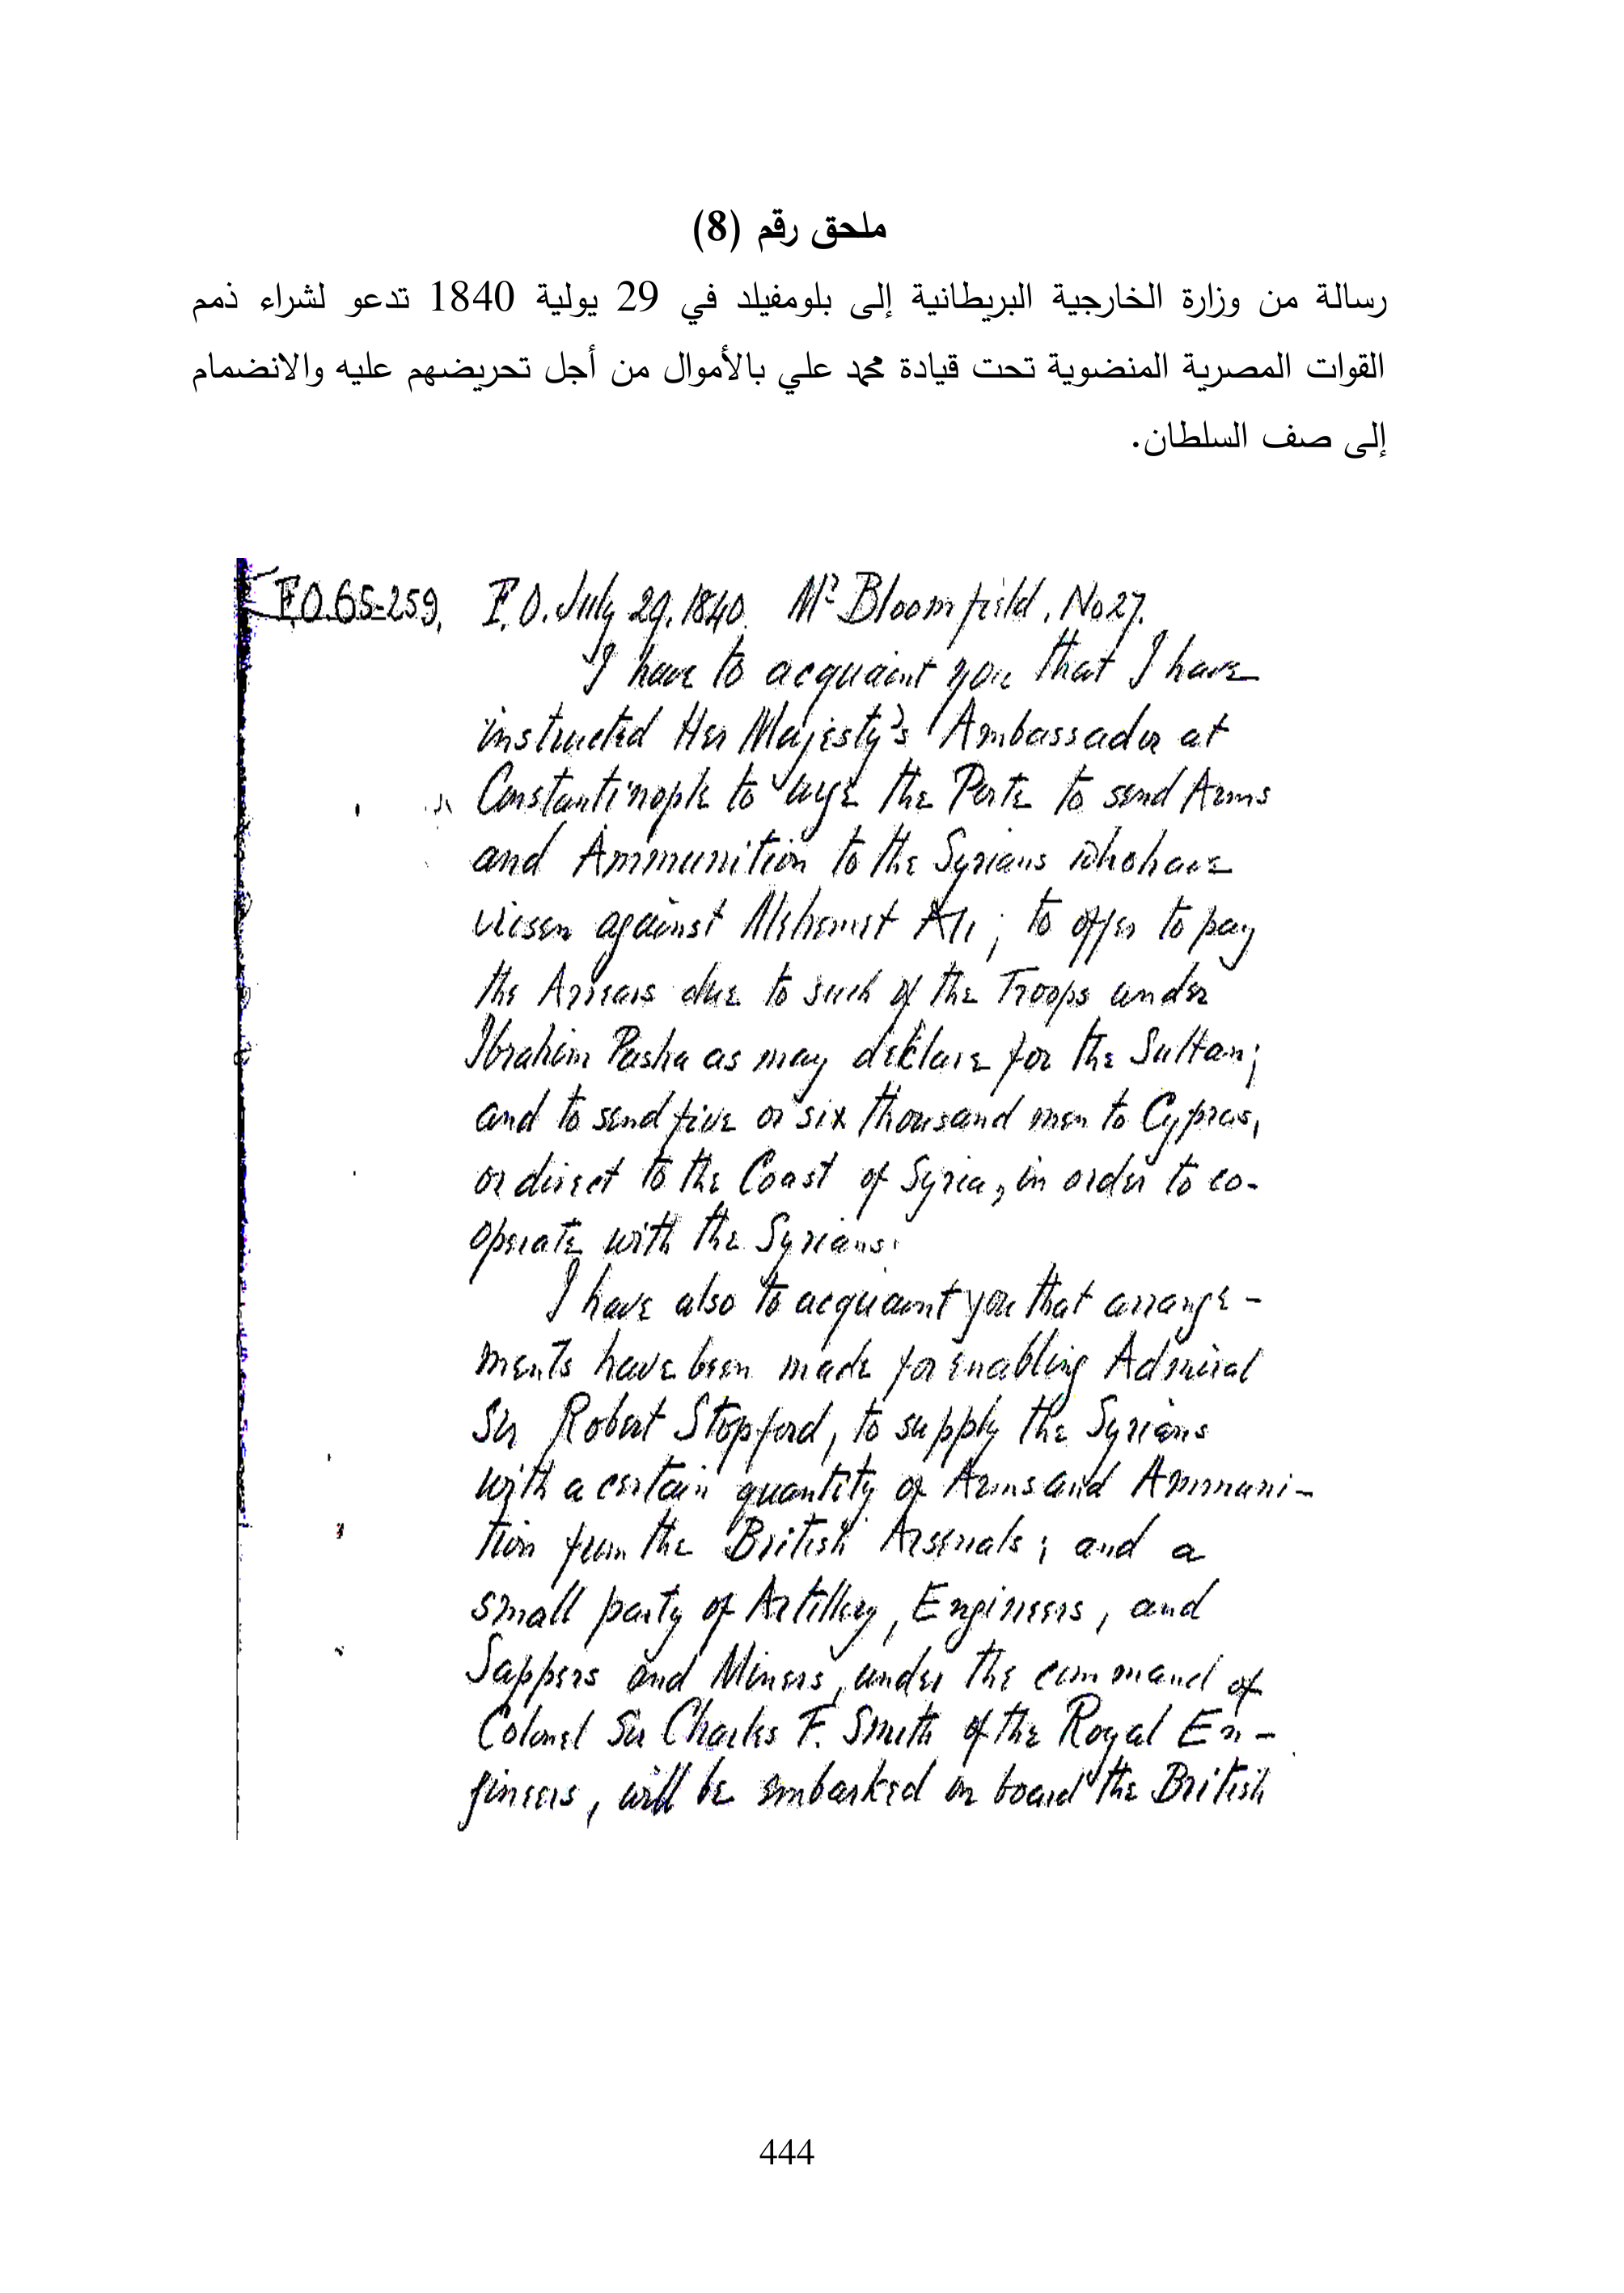 ملحق رقم (8)
رسالة من وزارة الخارجية البريطانية إلى بلومفيلد في 29 يولية 1840 تدعو لشراء ذمم
القوات المصرية المنضوية تحت قيادة محمد علي بالأموال من أجل تحريضهم عليه والانضمام
إلى صف السلطان.
F.O.65-259. F.O. July 29. 1840. Mr Bloomfield. No 27.
I have to acquaint you that I have
instructed Her Majesty's Ambassador at
Constantinople to urge the Porte to send Arms
and Ammunition to the Syrians who have
risen against Mehemet Ali; to offer to pay
the Arrears due to such of the Troops under
Ibrahim Pasha as may declare for the Sultan;
and to send five or six thousand men to Cyprus,
or direct to the Coast of Syria, in order to co-
operate with the Syrians.
I have also to acquaint you that arrange-
ments have been made for enabling Admiral
Sir Robert Stopford, to supply the Syrians
with a certain quantity of Arms and Ammuni-
tion from the British Arsenals; and a
small party of Artillery, Engineers, and
Sappers and Miners, under the command of
Colonel Sir Charles F. Smith of the Royal En-
gineers, will be embarked on board the British
444